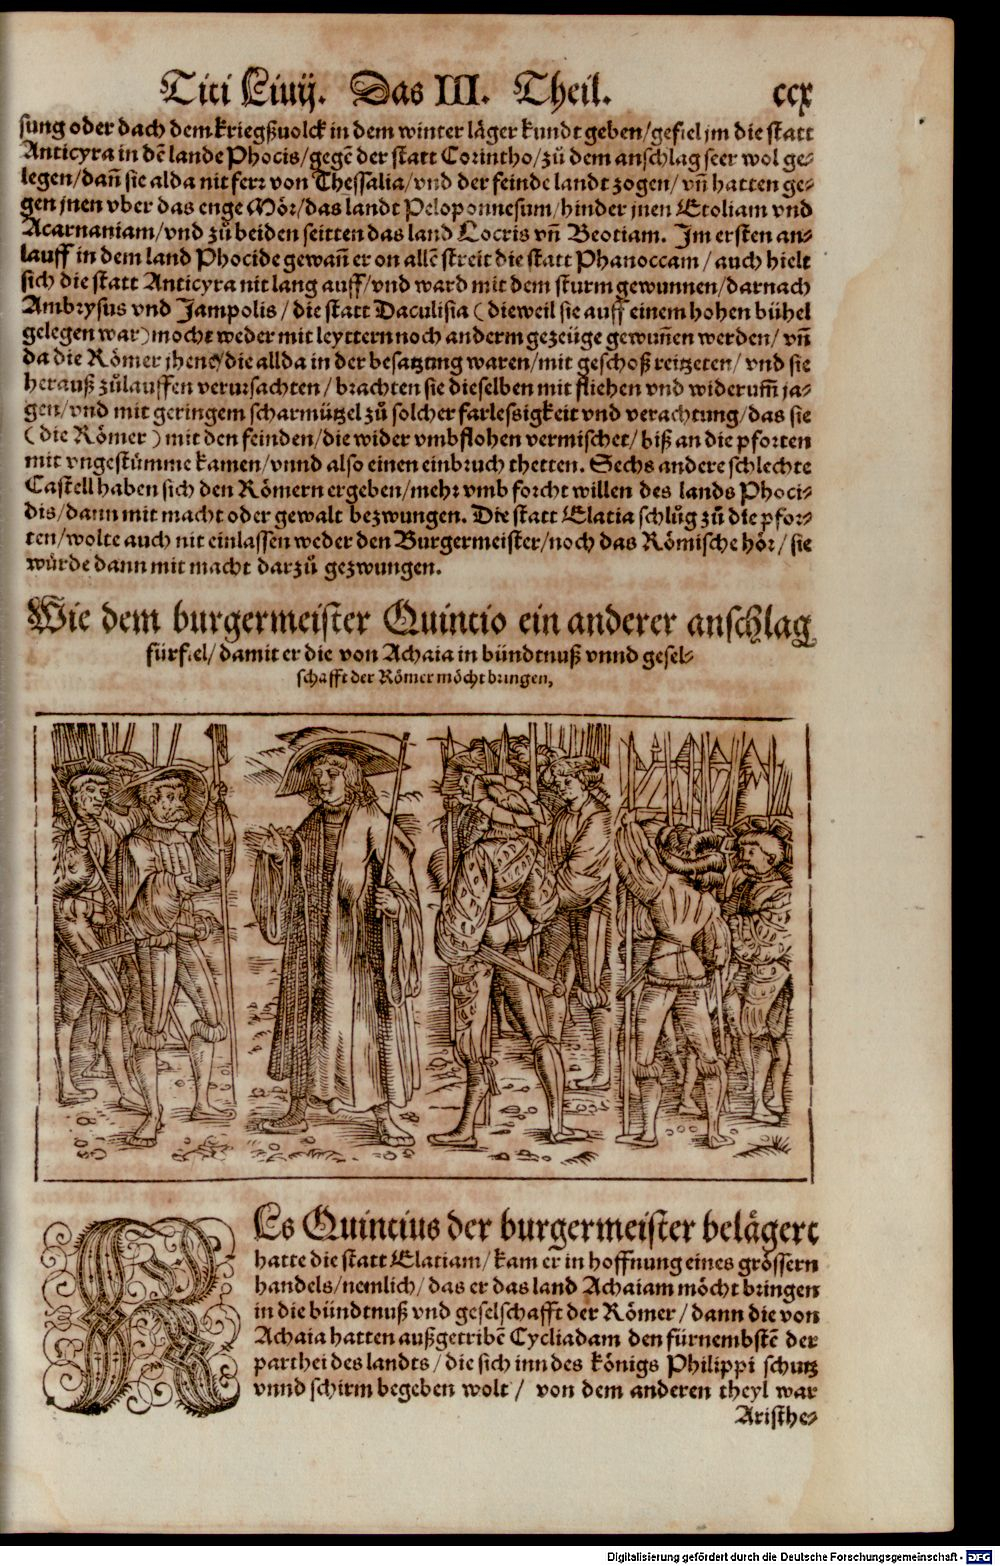 Titi Liuij. Das III. Theil. ccx
sung oder dach dem kriegßuolck in dem winter läger kundt geben/gefiel jm die statt
Anticyra in dē lande Phocis/gegē der statt Corintho/zů dem anschlag seer wol ge-
legen/dañ sie alda nit ferr von Thessalia/vnd der feinde landt zogen/vñ hatten ge-
gen jnen vber das enge Mör/das landt Peloponnesum/hinder jnen Etoliam vnd
Acarnaniam/vnd zů beiden seitten das land Locris vñ Beotiam. Im ersten an-
lauff in dem land Phocide gewañ er on allē streit die statt Phanoccam/auch hielt
sich die statt Anticyra nit lang auff/vnd ward mit dem sturm gewunnen/darnach
Ambrysus vnd Jampolis/die statt Daculisia (dieweil sie auff einem hohen bühel
gelegen war) mocht weder mit leyttern noch anderm gezeüge gewuñen werden/vñ
da die Römer jhene/die allda in der besatzung waren/mit geschoß reitzeten/vnd sie
herauß zůlauffen verursachten/brachten sie dieselben mit fliehen vnd widerum̃ ja-
gen/vnd mit geringem scharmützel zů solcher farlessigkeit vnd verachtung/das sie
(die Römer) mit den feinden/die wider vmbflohen vermischet/biß an die pforten
mit vngestümme kamen/vnnd also einen einbruch thetten. Sechs andere schlechte
Castell haben sich den Römern ergeben/mehr vmb forcht willen des lands Phoci-
dis/dann mit macht oder gewalt bezwungen. Die statt Elatia schlůg zů die pfor-
ten/wolte auch nit einlassen weder den Burgermeister/noch das Römische hör/sie
würde dann mit macht darzů gezwungen.
Wie dem burgermeister Quintio ein anderer anschlag
fürfiel/damit er die von Achaia in bündtnuß vnnd gesel-
schafft der Römer möcht bringen,
Es Quintius der burgermeister belägert
hatte die statt Elatiam/kam er in hoffnung eines grössern
handels/nemlich/das er das land Achaiam möcht bringen
in die bündtnuß vnd geselschafft der Römer/dann die von
Achaia hatten außgetribē Cycliadam den fürnembstē der
parthei des landts/die sich inn des königs Philippi schutz
vnnd schirm begeben wolt/ von dem anderen theyl war
Aristhe-
Digitalisierung gefördert durch die Deutsche Forschungsgemeinschaft - DFG